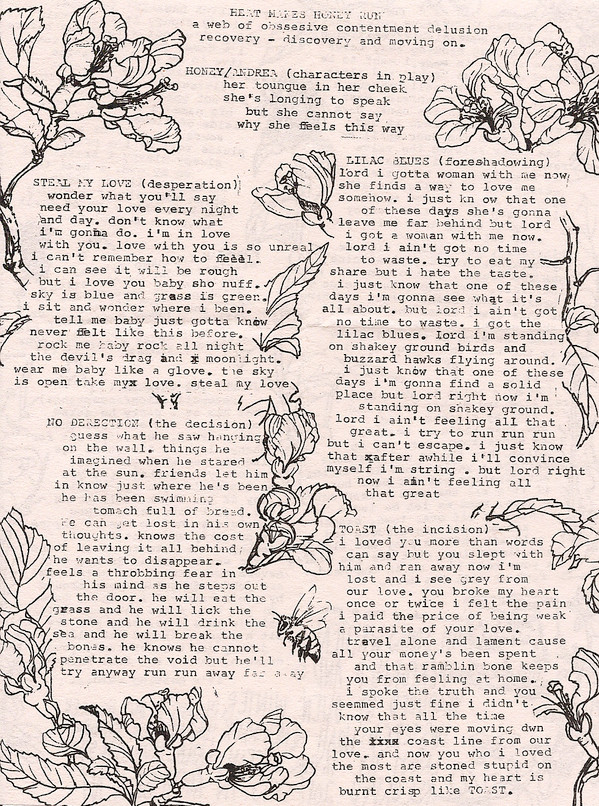 HEAT MAKES HONEY RUN
a web of obssesive contentment delusion
recovery - discovery and moving on.
HONEY/ANDREA (characters in play)
her toungue in her cheek
she's longing to speak
but she cannot say
why she feels this way
STEAL MY LOVE (desperation)
wonder what you'll say
need your love every night
and day. don't know what
i'm gonna do. i'm in love
with you. love with you is so unreal
i can't remember how to feeel.
i can see it will be rough
but i love you baby sho nuff.
sky is blue and grass is green.
i sit and wonder where i been.
tell me baby just gotta know
never felt like this before.
rock me baby rock all night
the devil's drag and x moonlight.
wear me baby like a glove. the sky
is open take myx love. steal my love
NO DERECTION (the decision)
guess what he saw hanging
on the wall. things he
imagined when he stared
at the sun. friends let him
in know just where he's been
he has been swimming
tomach full of bread.
he can get lost in his own
thoughts. knows the cost
of leaving it all behind
he wants to disappear.
feels a throbbing fear in
his mind as he steps out
the door. he will eat the
grass and he will lick the
stone and he will drink the
sea and he will break the
bones. he knows he cannot
penetrate the void but he'll
try anyway run run away far away
LILAC BLUES (foreshadowing)
lord i gotta woman with me now
she finds a way to love me
somehow. i just kn ow that one
of these days she's gonna
leave me far behind but lord
i got a woman with me now.
lord i ain't got no time
to waste. try to eat my
share but i hate the taste.
i just know that one of these
days i'm gonna see what it's
all about. but lord i ain't got
no time to waste. i got the
lilac blues. lord i'm standing
on shakey ground birds and
buzzard hawks flying around.
i just know that one of these
days i'm gonna find a solid
place but lord right now i'm
standing on shakey ground.
lord i ain't feeling all that
great. i try to run run run
but i can't escape. i just know
that xafter awhile i'll convince
myself i'm string . but lord right
now i ain't feeling all
that great
TOAST (the incision)
i loved you more than words
can say but you slept with
him and ran away now i'm
lost and i see grey from
our love. you broke my heart
once or twice i felt the pain
i paid the price of being weak
a parasite of your love.
travel alone and lament cause
all your money's been spent
and that ramblin bone keeps
you from feeling at home.
i spoke the truth and you
seemmed just fine i didn't
know that all the time
your eyes were moving dwn
the xixx coast line from our
love. and now you who i loved
the most are stoned stupid on
the coast and my heart is
burnt crisp like TOAST.